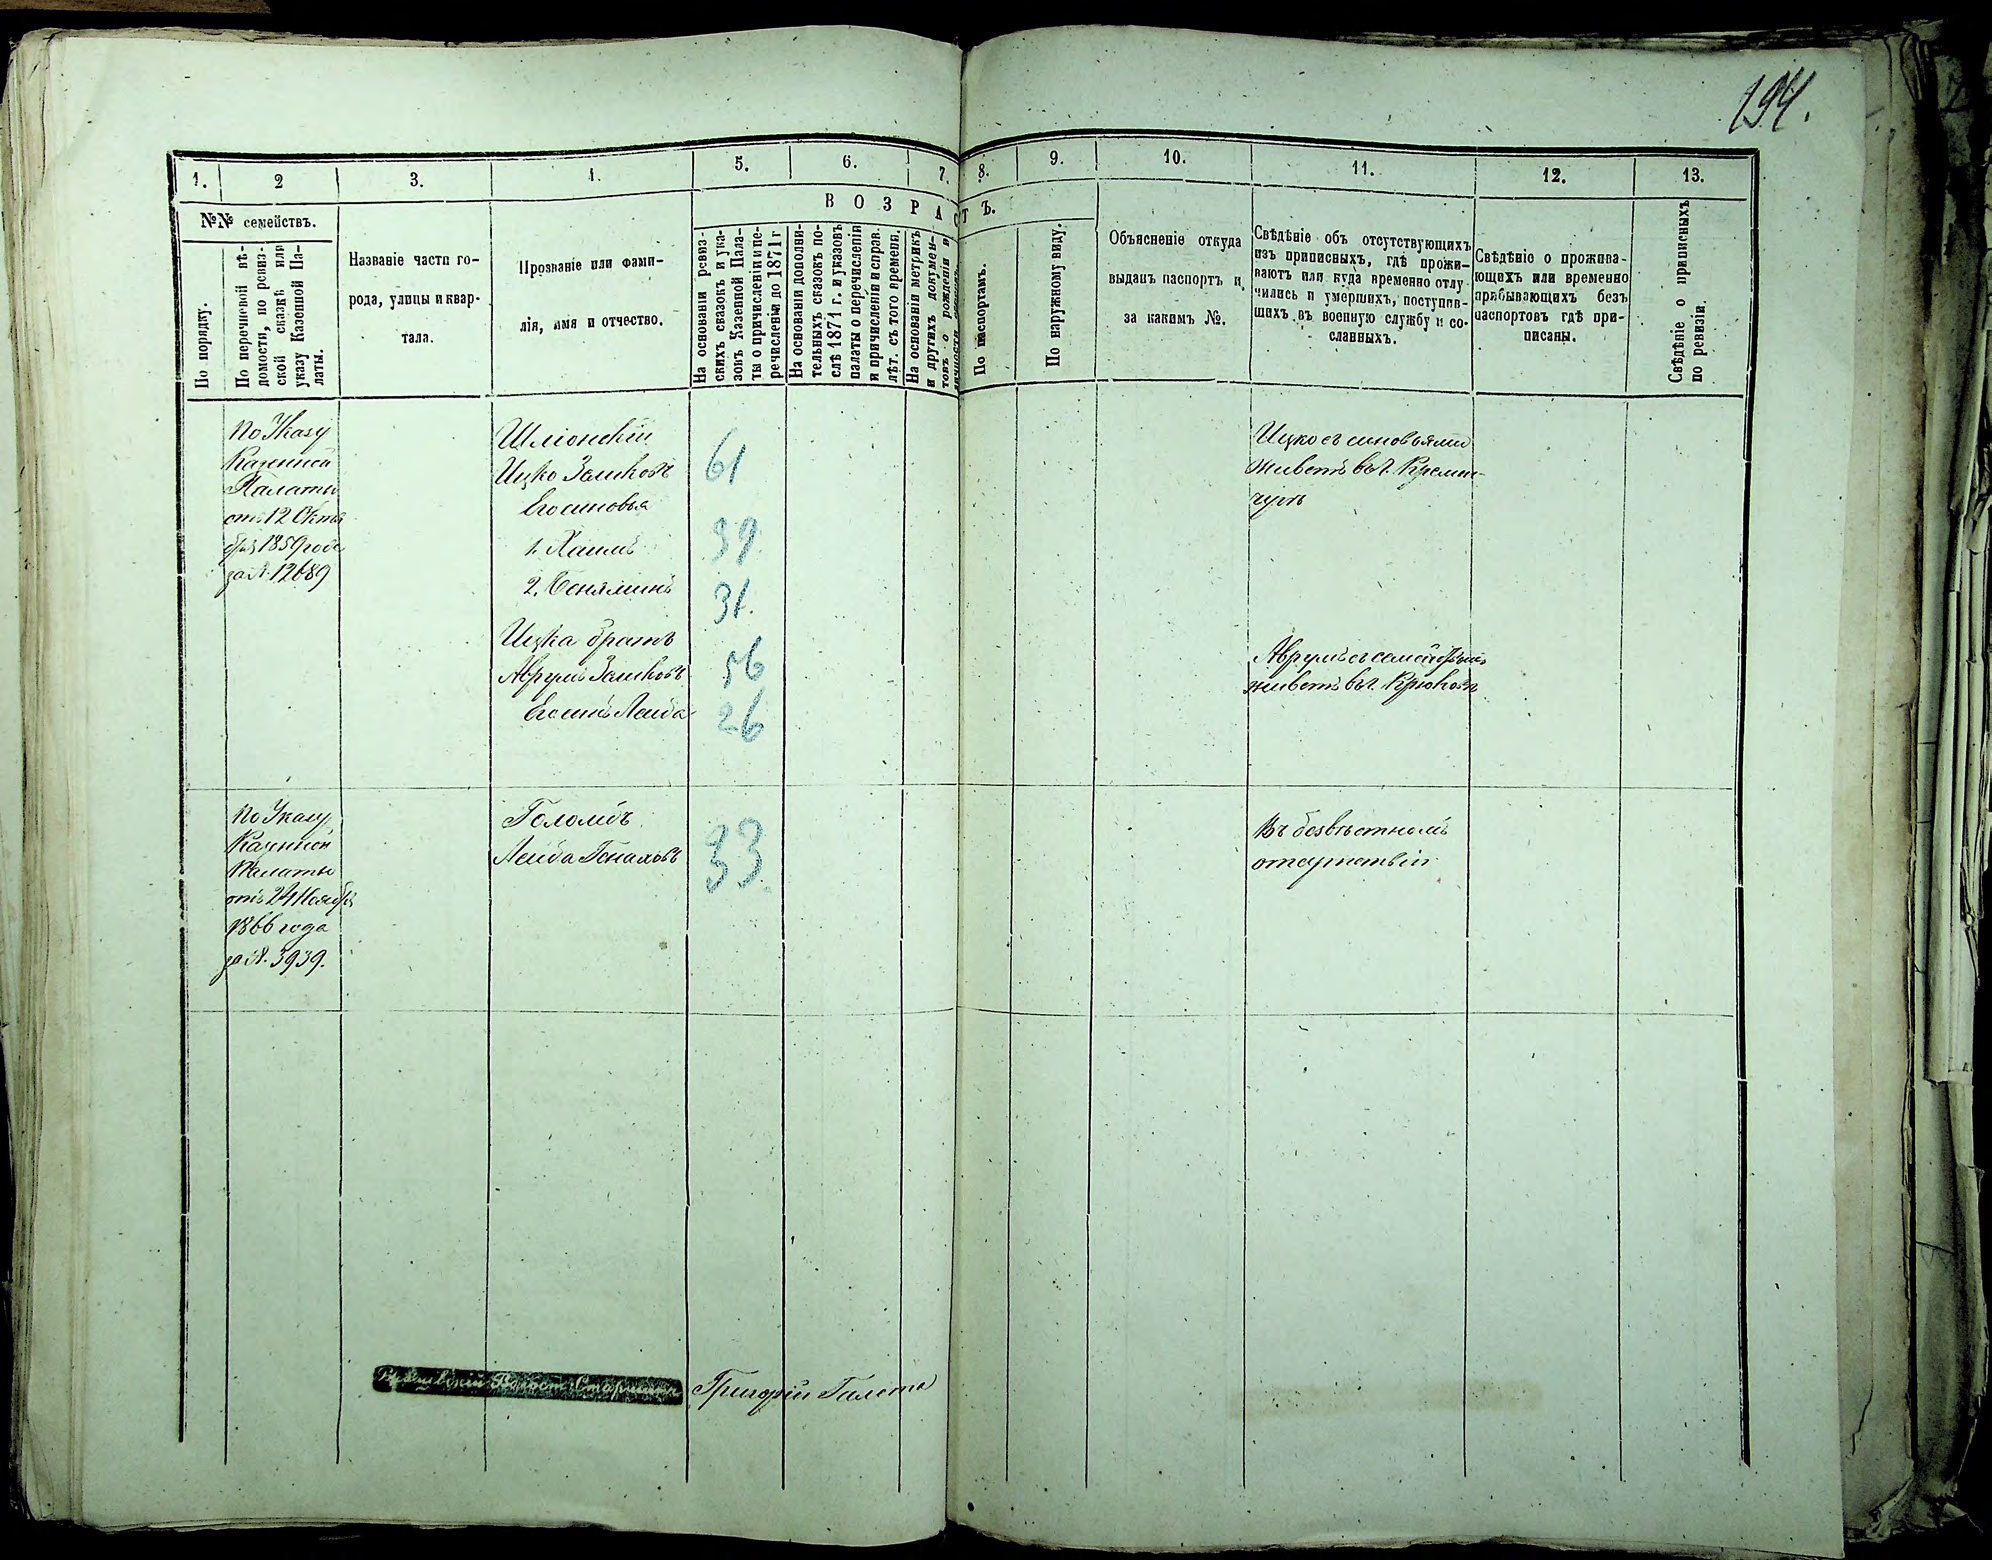 194.
1.
2
3.
4.
5.
6.
7.
8.
9.
10.
11.
12.
13.
№№ семействъ.
По порядку.
По перечневой вѣ-
домости, по ревиз-
ской сказкѣ или
указу Казенной Па-
латы.
Названіе части го-
рода, улицы и квар-
тала.
Прозваніе или фами-
лія, имя и отчество.
ВОЗРАСТЪ.
На основаніи ревиз-
скихъ сказокъ и ука-
зовъ Казенной Пала-
ты о причисленіи и пе-
речисленіи до 1871 г
На основаніи дополни-
тельныхъ сказокъ по-
слѣ 1871 г. и указовъ
палаты о перечисленіи
и причисленіи и справ.
лѣт. съ того времени.
На основаніи метрикъ
и другихъ докумен-
товъ о рожденіи и
По паспортамъ.
По наружному виду.
Объясненіе откуда
выданъ паспортъ и
за какимъ №.
Свѣдѣніе объ отсутствующихъ
изъ приписныхъ, гдѣ прожи-
ваютъ или куда временно отлу
чились и умершихъ, поступив-
шихъ въ военную службу и со-
сланныхъ.
Свѣдѣніе о прожива-
ющихъ или временно
прибывающихъ безъ
паспортовъ гдѣ при-
писаны.
Свѣдѣніе о приписныхъ
по ревизіи.
По Указу
Казенной
Палаты
отъ 12 Октя
бря 1859 года
за № 12689
Шліонскій
Ицко Зеликовъ
Его сыновья
1. Хаимъ
2. Беняминъ
Ицка братъ
Аврумъ Зеликовъ
Его сынъ Лейба
61
39
31.
56
26
Ицко съ сыновьями
живетъ въ г. Кремен-
чугѣ
Аврумъ съ семействомъ
живетъ въ г. Крюковѣ
По Указу
Казенной
Палаты
отъ 24 Ноября
1866 года
за № 3939.
Голомбъ
Лейба Генаховъ
33.
Въ безвѣстномъ
отсутствіи
Волост. Старшина
Григорій Галета